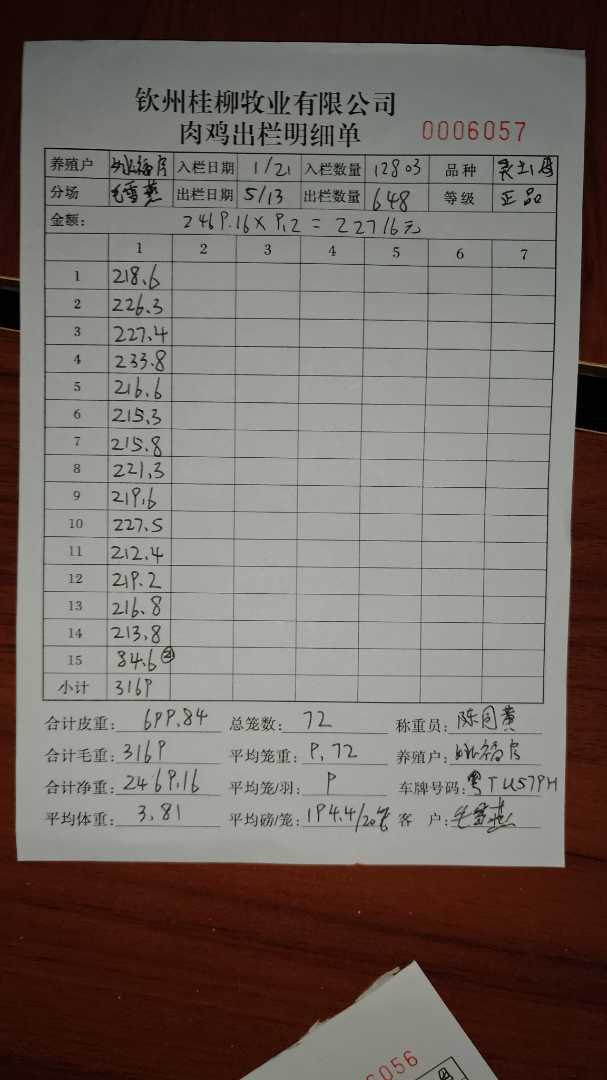 钦州桂柳牧业有限公司
肉鸡出栏明细单 0006057
养殖户 福 入栏日期 1/21 入栏数量 12803 品种
分场 毛雪燕 出栏日期 5/13 出栏数量 648 等级 正品
金额: 2469.16×9.2=22716元
1 2 3 4 5 6 7
1 218.6
2 226.3
3 227.4
4 233.8
5 216.6
6 215.3
7 215.8
8 221.3
9 219.6
10 227.5
11 212.4
12 219.2
13 216.8
14 213.8
15 84.6 ②
小计 3169
合计皮重: 699.84 总笼数: 72 称重员: 陈同黄
合计毛重: 3169 平均笼重: 9.72 养殖户: 福
合计净重: 2469.16 平均笼/羽: 9 车牌号码: 粤TU579H
平均体重: 3.81 平均磅/笼: 194.4/20笼 客户: 毛雪燕
6056